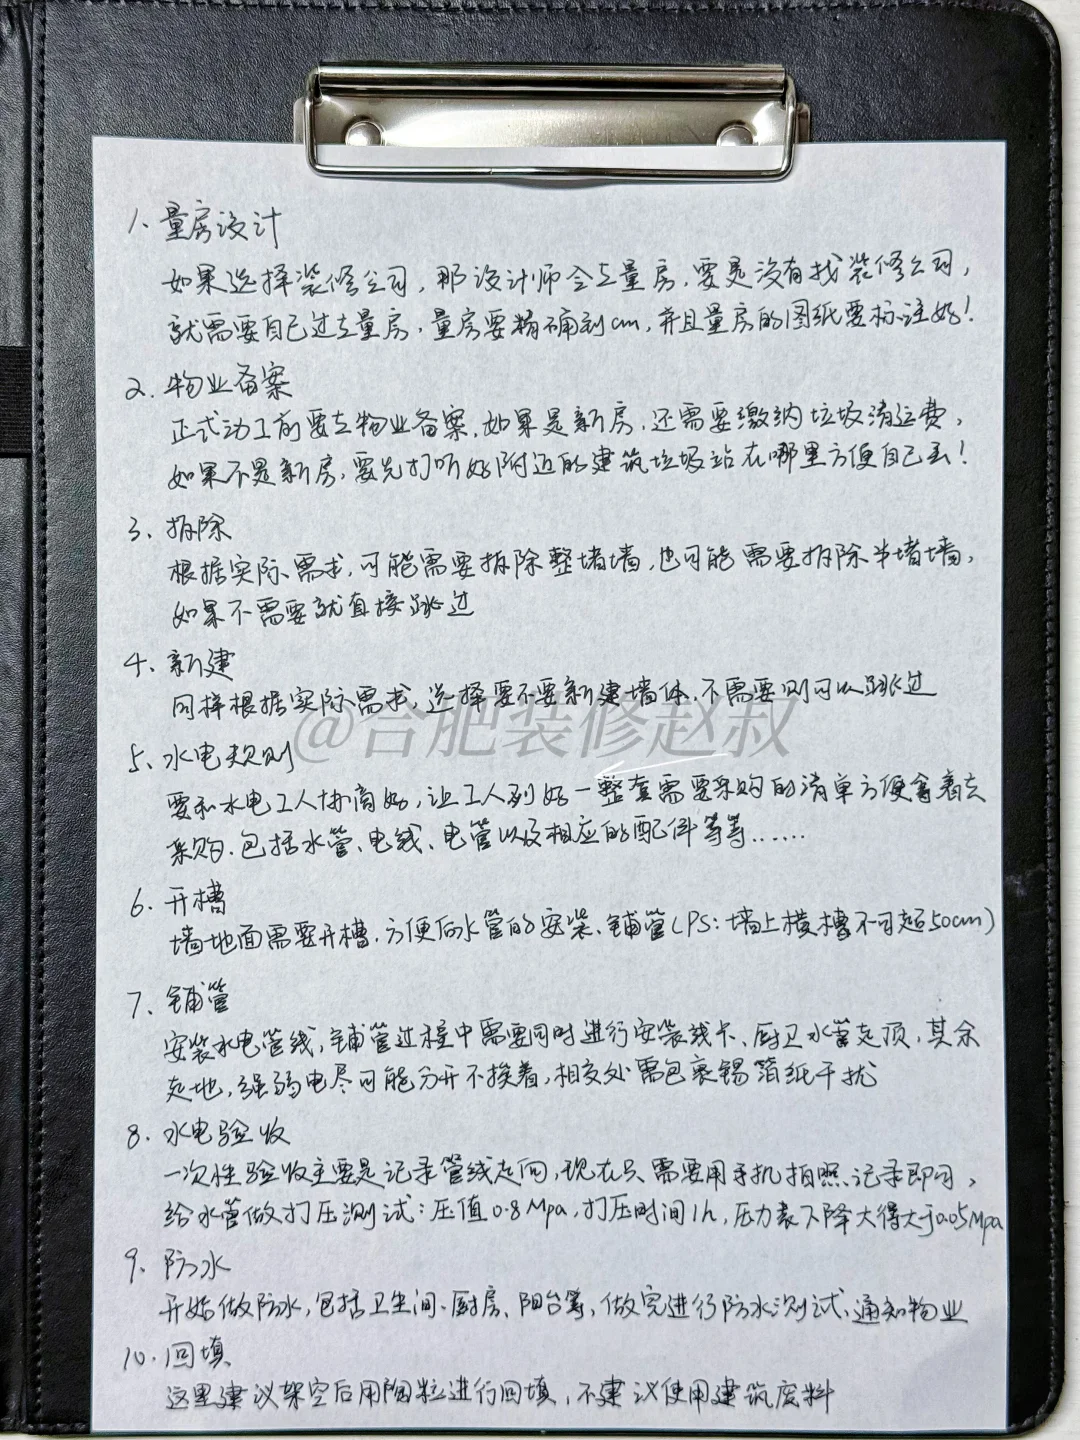 1、量房设计
如果选择装修公司，那设计师会去量房，要是没有找装修公司，
就需要自己过去量房，量房要精确到cm，并且量房的图纸要标注好！
2、物业备案
正式动工前要去物业备案，如果是新房，还需要缴纳垃圾清运费，
如果不是新房，要先打听好附近的建筑垃圾站在哪里方便自己丢！
3、拆除
根据实际需求，可能需要拆除整堵墙，也可能需要拆除半堵墙，
如果不需要就直接跳过
4、新建
同样根据实际需求，选择要不要新建墙体，不需要则可以跳过
@合肥装修赵叔
5、水电规则
要和水电工人协商好，让工人列好一整套需要采购的清单方便拿着去
采购，包括水管、电线、电管以及相应的配件等等......
6、开槽
墙地面需要开槽，方便后水管的安装、铺管(PS：墙上横槽不可超50cm)
7、铺管
安装水电管线，铺管过程中需要同时进行安装线卡、厨卫水管走顶，其余
走地，强弱电尽可能分开不挨着，相交处需包裹锡箔纸干扰
8、水电验收
一次性验收主要是记录管线走向，现在只需要用手机拍照、记录即可，
给水管做打压测试：压值0.8Mpa，打压时间1h，压力表下降大得大于0.05Mpa
9、防水
开始做防水，包括卫生间、厨房、阳台等，做完进行防水测试、通知物业
10、回填
这里建议架空后用陶粒进行回填，不建议使用建筑废料